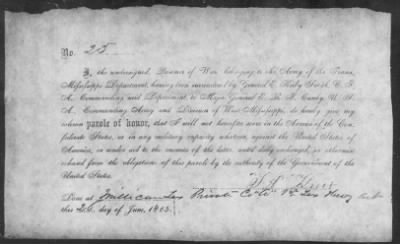 No. 25
I, the undersigned, Prisoner of War, belonging to the Army of the Trans-
Mississippi Department, having been surrendered by General E. Kirby Smith, C. S.
A., Commanding said Department, to Major General E. R. S. Canby, U. S.
A., Commanding Army and Division of West Mississippi, do hereby give my
solemn parole of honor, that I will not hereafter serve in the Armies of the Con-
federate States, or in any military capacity whatever, against the United States of
America, or render aid to the enemies of the latter, until duly exchanged, or otherwise
released from the obligations of this parole by the authority of the Government of the
United States.
Done at Millican Tex Private Co
this day of June, 1865.